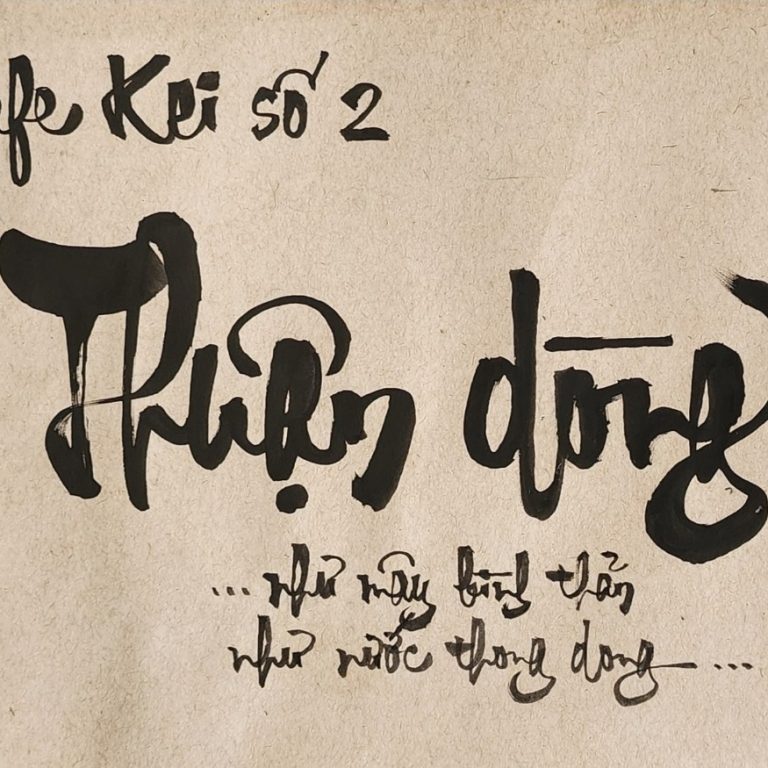 Kei số 2
Thuận dòng
... như mây bình thản
như nước thong dong ...